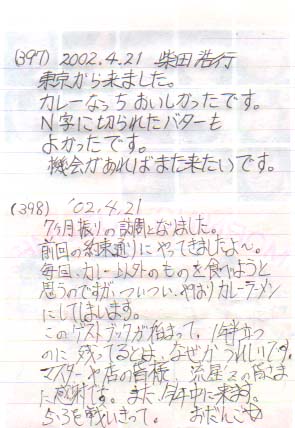 (397) 2002.4.21 柴田浩行
東京から来ました。
カレーなっちおいしかったです。
N字に切られたバターも
よかったです。
機会があればまた来たいです。
(398) '02.4.21
7ヶ月振りの訪問となりました。
前回の約束通りにやってきましたよ〜。
毎回、カレー以外のものを食べようと
思うのですが、ついつい、やはりカレーラーメン
にしてしまいます。
このゲストブックが始まって、1年半たつ
のに残ってるとは、なぜかうれしいです。
マスターや店の皆様、流星Zの皆さま
に感謝です。また今年中に来ます。
5:3を戦いきって。 おだんごや